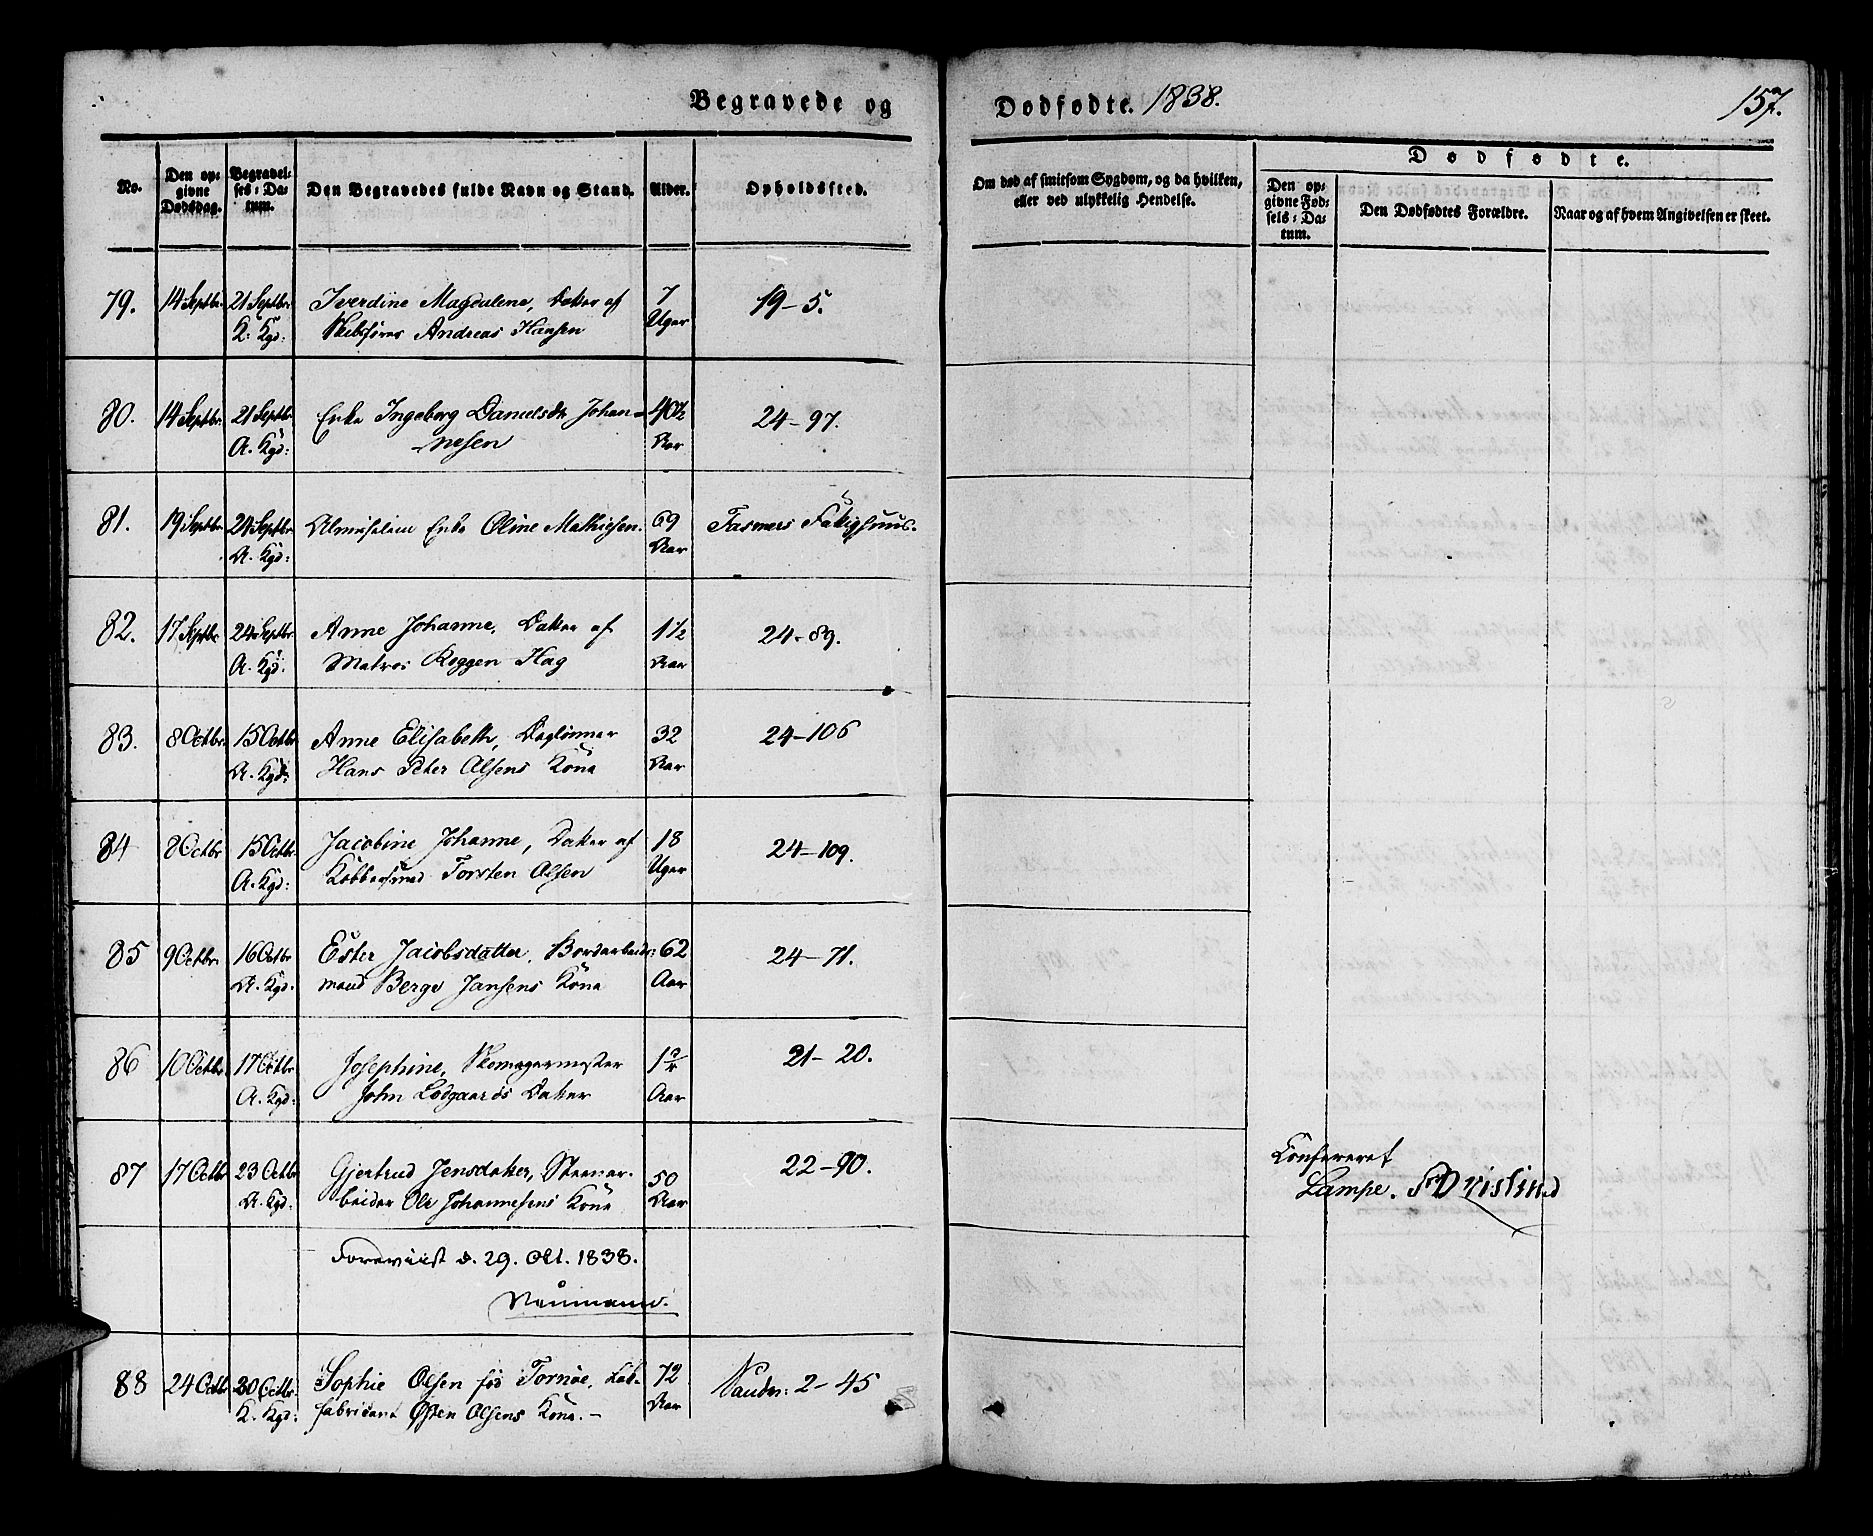 Begravede og Dødfødte. 1838. 157.
No.
Den opgivne Dødsdag.
Begravelses-Datum.
Den Begravedes fulde Navn og Stand.
Alder.
Opholdssted.
Om død af smitsom Sygdom, og da hvilken,
eller ved ulykkelig Hendelse.
Dødfødte.
Den opgivne Fødsels-Datum.
Den Dødfødtes Forældre.
Naar og af hvem Angivelsen er skeet.
79. 14 Septbr. 21 Septbr. Iverdine Magdalene, Datter af 7 19-5.
K. Kgd: Andreas Hansen Uger
80. 14 Septbr. 21 Septbr Enke Ingeborg Danielsdtr Johan= 40½ 24-97.
A. Kgd: nesen Aar
81. 19 Septbr 24 Septbr Almislem Enke Oline Mathiesen. 69 Fasmers Fattighuus.
A. Kgd: Aar
82. 17 Septbr 24 Septbr Anne Johanne, Datter af 1½ 24-89.
A. Kgd: Matros Roggen Hag Aar
83. 8 Octbr. 15 Octbr Anne Elisabeth, Daglønner 32 24-106
A. Kgd: Hans Peter Olsens Kone Aar
84 8 Octbr 15 Octbr. Jacobine Johanne, Datter af 18 24-109.
A. Kgd: Kobbersmed Torsten Olsen Uger
85 9 Octbr. 16 Octbr Ester Jacobsdatter, Bordarbeids: 62 24-71.
A. Kgd. mand Berge Jansens Kone Aar
86 10 Octbr. 17 Octbr. Josephine, Skomagermester 21-20.
A. Kgd: John Lodgaards Datter Aar
87 17 Octbr 23 Octbr Gjertrud Jensdatter, Steenar- 50 22-90.
A. Kgd. beider Ole Johannesens Kone Aar
Confereret
Lampe.
Foreviist d. 29. Oct. 1838.
Neumann.
88 24 Octbr 30 Octbr. Sophie Olsen fød Tornøe, 72 2-45
K. Kgd: fabricant Østen Olsens Kone.- Aar